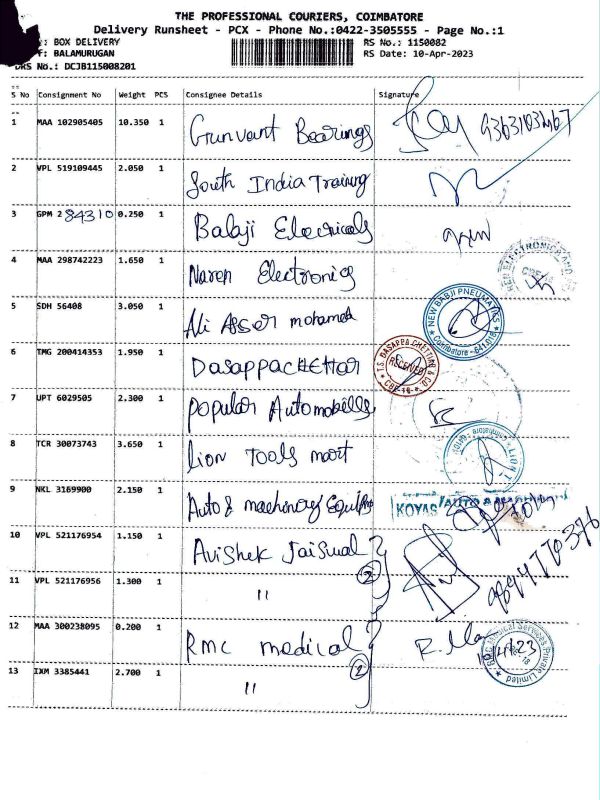 THE PROFESSIONAL COURIERS, COIMBATORE
Delivery Runsheet - PCX - Phone No.:0422-3505555 - Page No.:1
: BOX DELIVERY RS No.: 1150082
: BALAMURUGAN RS Date: 10-Apr-2023
DRS No.: DCJB115008201
S No Consignment No Weight PCS Consignee Details Signature
1 MAA 102905405 10.350 1 Gunvant Bearings
2 VPL 519109445 2.050 1 South India Training
3 GPM 284310 0.250 1 Balaji Elecricals
4 MAA 298742223 1.650 1 Naren Electronics
5 SDH 56408 3.050 1 Ali Asser mohamed NEW BABJI PNEUMATICS Coimbatore - 641 018
6 TMG 200414353 1.950 1 Dasappachettiar T.S. DASAPPA CHETTIAR & CO. RECEIVED CBE-18
7 UPT 6029505 2.300 1 Popular Automobiles
8 TCR 30073743 3.650 1 Lion Tools mart LION
9 NKL 3169900 2.150 1 Auto & machinery Equip KOYAS AUTO
10 VPL 521176954 1.150 1 Avishek Jaiswal 2
11 VPL 521176956 1.300 1 "
12 MAA 300238095 0.200 1 RMC medical 2 RMC Medical Services Private Limited
13 IXM 3385441 2.700 1 "